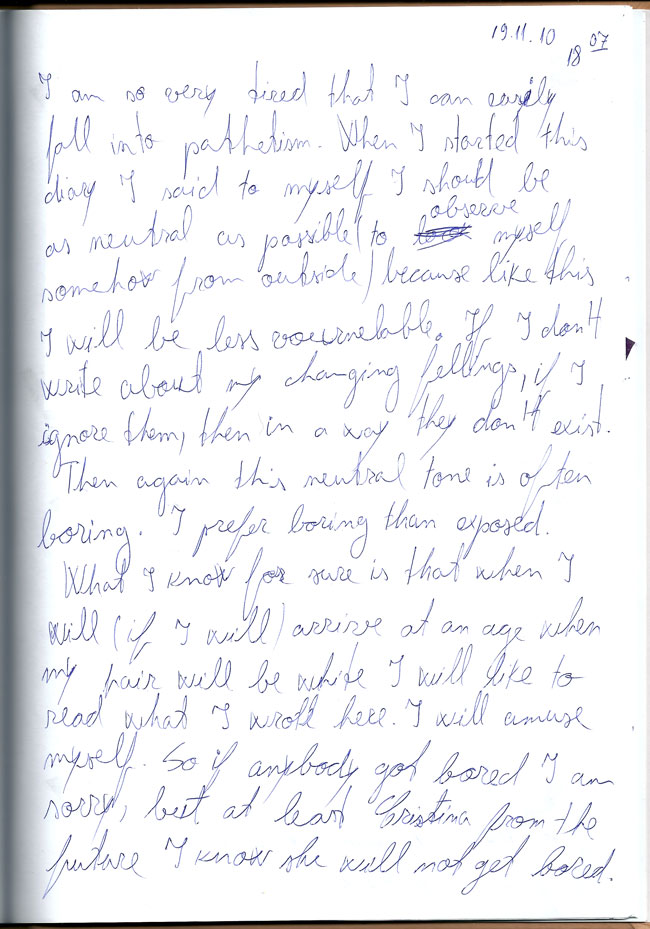 19.11.10
18 07
I am so very tired that I can easily
fall into pathetism. When I started this
diary I said to myself I should be
observe
as neutral as possible (to myself,
somehow from outside) because like this
I will be less vournelable. If I don't
write about my changing fellings, if I
ignore them, then in a way they don't exist.
Then again this neutral tone is often
boring. I prefer boring than exposed.
What I know for sure is that when I
will (if I will) arrive at an age when
my hair will be white I will like to
read what I wrote here. I will amuse
myself. So if anybody got bored I am
sorry, but at least Cristina from the
future I know she will not get bored.